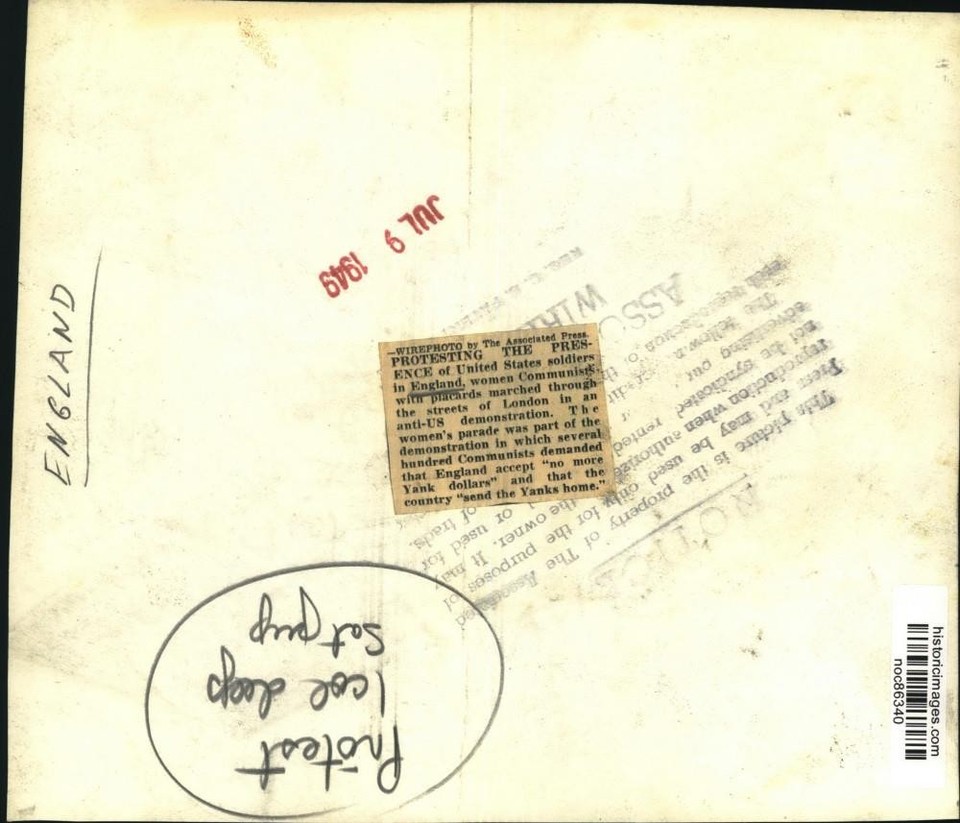 ENGLAND
JUL 9 1949
—WIREPHOTO by The Associated Press.
PROTESTING THE PRES-
ENCE of United States soldiers
in England, women Communists
with placards marched through
the streets of London in an
anti-US demonstration. The
women's parade was part of the
demonstration in which several
hundred Communists demanded
that England accept "no more
Yank dollars" and that the
country "send the Yanks home."
NOTICE
This picture is the property of The Associated
Press and may be used only for the purposes of
reproduction when authorized
not be syndicated, rented
advertising
The following
ASSO
WIRE
Protest
1 col deep
Sat
historicimages.com
noc86340